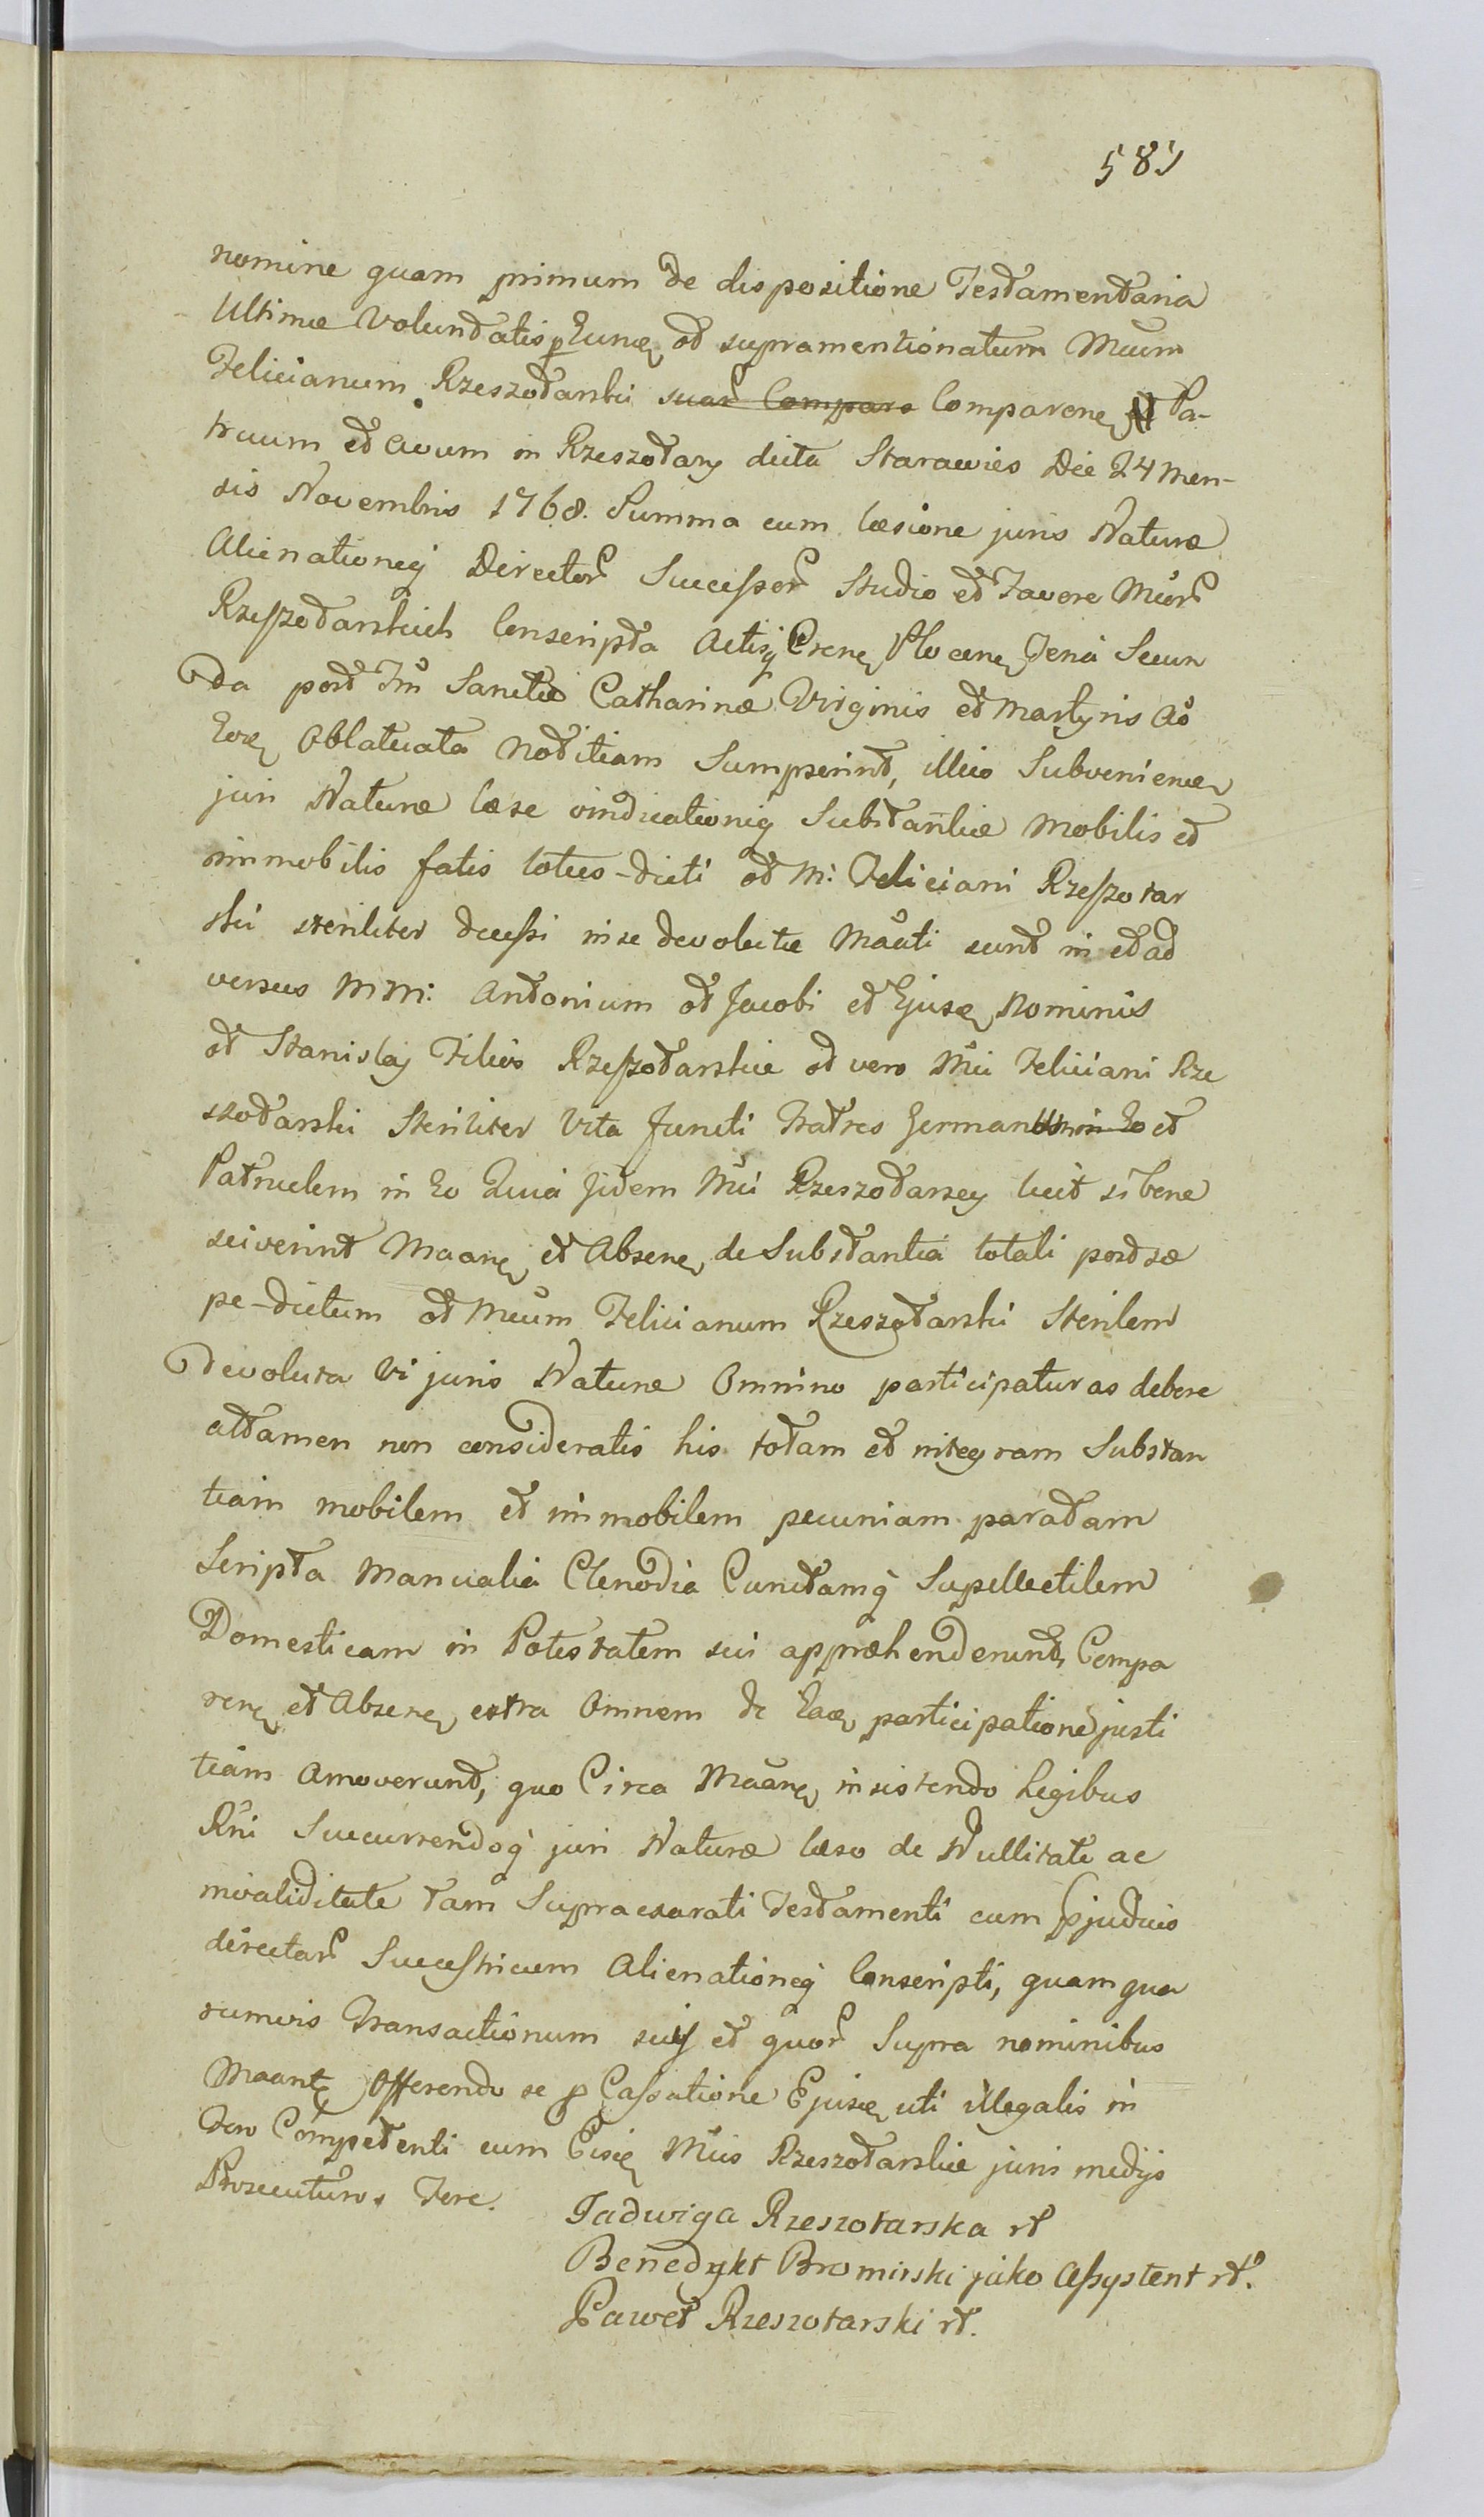 589
nomine quam primum de dispositione Testamentaria
Ultimæ Voluntatis p Eunę ol supramentionatum Mcum
Felicianum Rzeszotarski suar Compare Comparenę et Pa-
truum et Avum in Rzeszotary dicta Starawies Die 24 Men-
sis Novembris 1768. Summa cum læsione juris Naturæ
Alienationeq Director Successor Studio et Favore Mcor
Rzeszotarskich Conscripta Actisq Crenę Plocenę Feria Secun
da post Fm Sanctæ Catharinæ Virginis et Martyris Ao
Eorę Oblatuata Notitiam Sumpserint, illico Subvenienę
juri Naturæ læse vindicationiq Substantiæ Mobilis et
immobilis fatis toties-dicti ol M: Feliciani Rzeszotar
ski steriliter decessi in se devolutæ Maati sunt in et ad
versus MM: Antonium ol Jacobi et Ejusę Nominis
ol Stanislaj Filios Rzeszotarskie ol vero Mci Feliciani Rze
szotarski Steriliter Vita functi Fratres German et
Patruelem in Eo Quia Jidem Mci Rzeszotarscy licet si bene
sciverint Maanę et Absenę de Substantia totali post sæ
pe-dictum ol Mcum Felicianum Rzeszotarski Sterilem
devoluta Vi juris Naturæ Omnino participaturas debere
attamen non consideratis his totam et integram Substan
tiam mobilem et immobilem pecuniam paratam
Scripta Manualia Clenodia Cunctamq Supellectilem
Domesticam in Potestatem sui appræhenderunt, Compa
renę et Absenę extra Omnem de Eaę participatione justi
tiam Amoverunt, quo Circa Maanę insistendo Legibus
Rni Succurrendoq juri Naturæ læso de Nullitate ac
invaliditate tam Supraexarati Testamenti cum pjudicio
directar Successricum Alienationeq Conscripti, quam quo
rumvis Transactionum suij et quor Supra nominibus
Maantę Offerendo se p Cassatione Ejusę uti illegalis in
Foro Competenti cum Eisę Mcis Rzeszotarskie juris medijs
Prosecuturos Fore.
Jadwiga Rzeszotarska rl
Benedykt Bromirski jako Assystent rl.
Paweł Rzeszotarski rl.